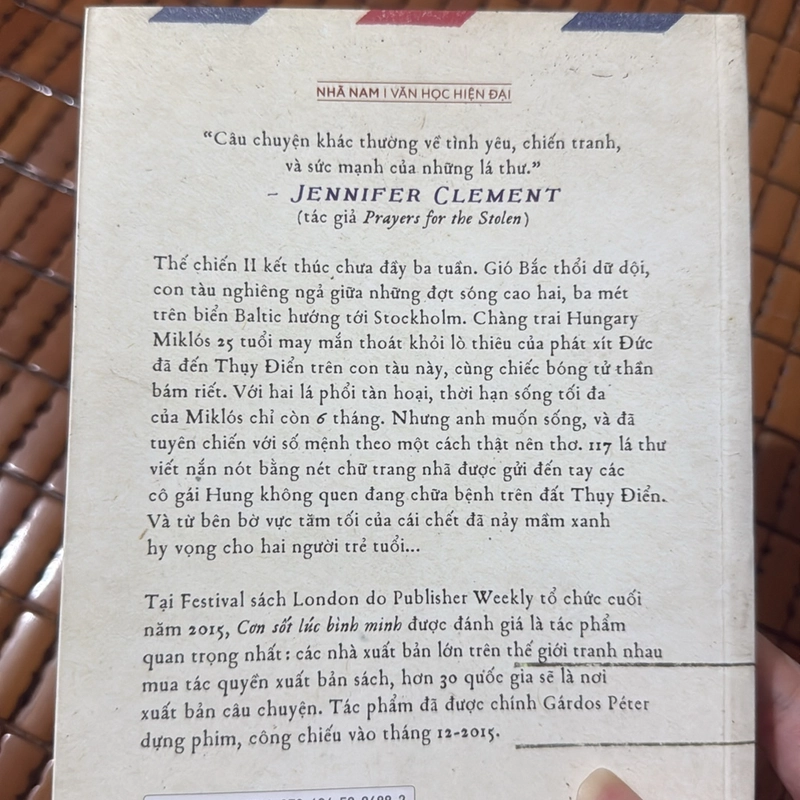 NHÃ NAM | VĂN HỌC HIỆN ĐẠI
“Câu chuyện khác thường về tình yêu, chiến tranh,
và sức mạnh của những lá thư.”
– JENNIFER CLEMENT
(tác giả Prayers for the Stolen)
Thế chiến II kết thúc chưa đầy ba tuần. Gió Bắc thổi dữ dội,
con tàu nghiêng ngả giữa những đợt sóng cao hai, ba mét
trên biển Baltic hướng tới Stockholm. Chàng trai Hungary
Miklós 25 tuổi may mắn thoát khỏi lò thiêu của phát xít Đức
đã đến Thụy Điển trên con tàu này, cùng chiếc bóng tử thần
bám riết. Với hai lá phổi tàn hoại, thời hạn sống tối đa
của Miklós chỉ còn 6 tháng. Nhưng anh muốn sống, và đã
tuyên chiến với số mệnh theo một cách thật nên thơ. 117 lá thư
viết nắn nót bằng nét chữ trang nhã được gửi đến tay các
cô gái Hung không quen đang chữa bệnh trên đất Thụy Điển.
Và từ bên bờ vực tăm tối của cái chết đã nảy mầm xanh
hy vọng cho hai người trẻ tuổi...
Tại Festival sách London do Publisher Weekly tổ chức cuối
năm 2015, Cơn sốt lúc bình minh được đánh giá là tác phẩm
quan trọng nhất: các nhà xuất bản lớn trên thế giới tranh nhau
mua tác quyền xuất bản sách, hơn 30 quốc gia sẽ là nơi
xuất bản câu chuyện. Tác phẩm đã được chính Gárdos Péter
dựng phim, công chiếu vào tháng 12-2015.